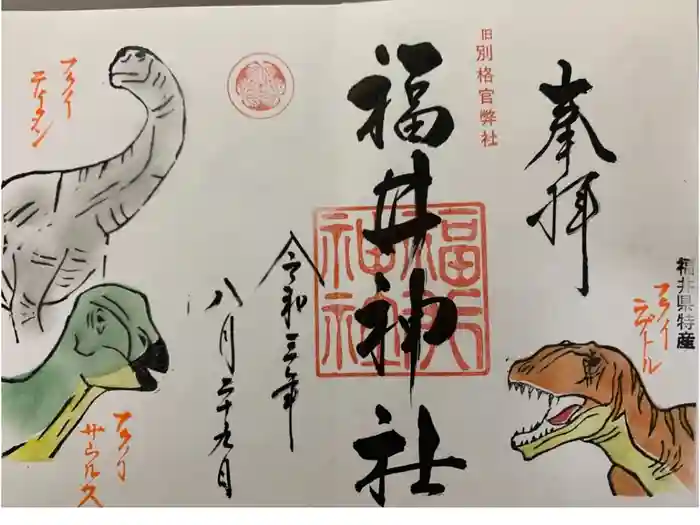 奉拝
福井県特産
フクイ
ラプトル
旧別格官弊社
福井神社
福井
神社
令和三年
八月二十九日
フクイ
ティタン
フクイ
サウルス